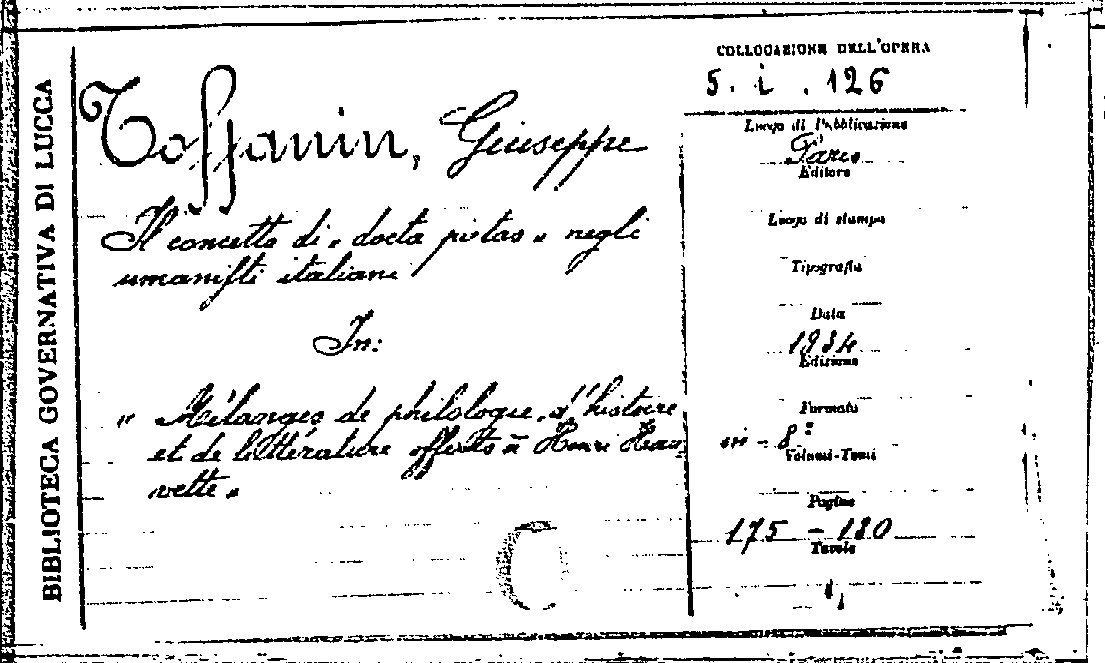 BIBLIOTECA GOVERNATIVA DI LUCCA
Toffanin, Giuseppe
Il concetto di „ docta pietas „ negli
umanisti italiani
In:
„ Mélanges de philologie, d'histoire
et de littérature offerts à Henri Hau
vette „
COLLOCAZIONE DELL'OPERA
5. i . 126
Luogo di Pubblicazione
Paris
Editore
Luogo di stampa
Tipografia
Data
1934
Edizione
Formato
in - 8º
Volumi-Tomi
Pagine
175 - 180
Tavole